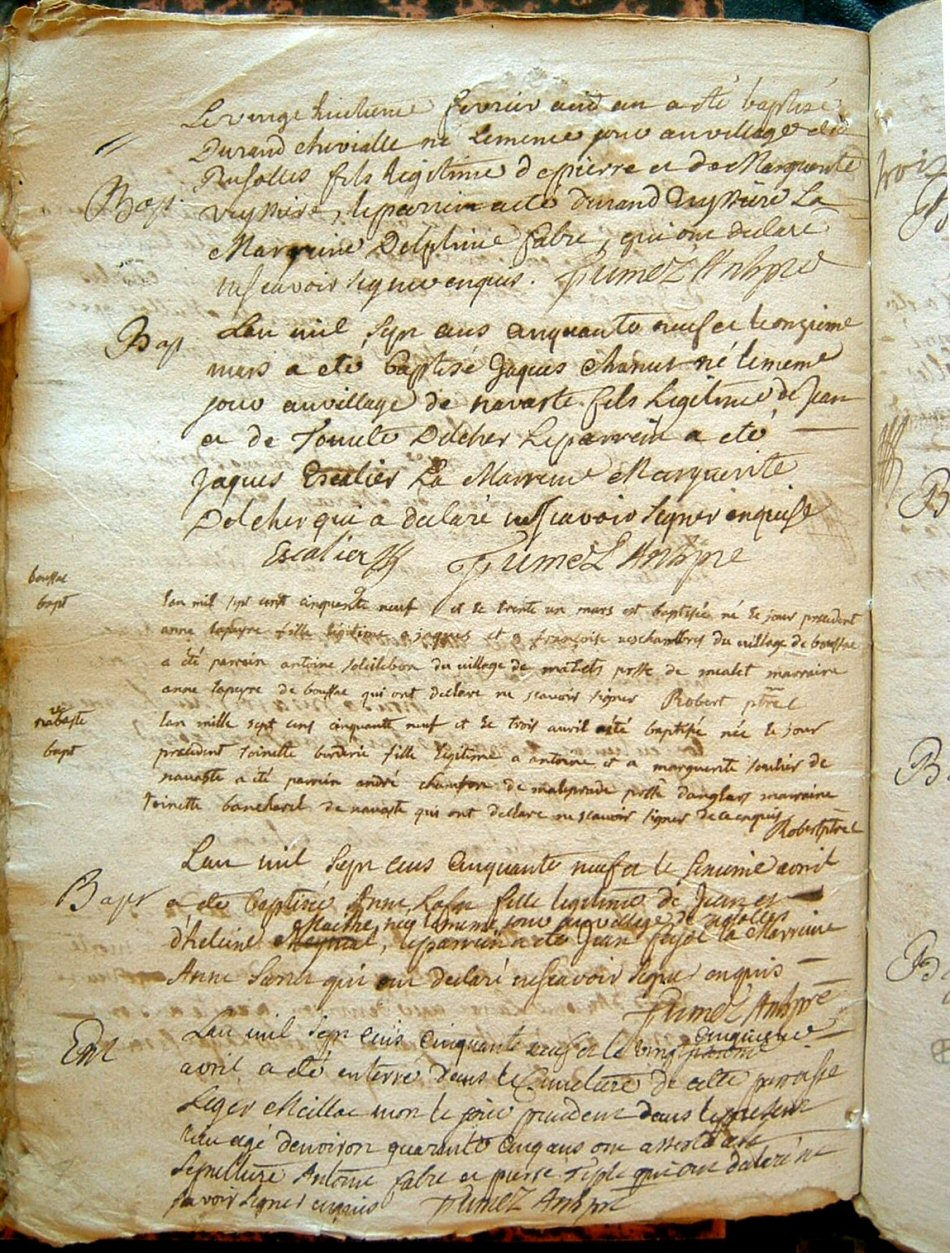 Le vingt huitieme fevrier audit an a été baptisé
Bapt
Durand chivialle né le meme jour au village de
Rusolles fils legitime de pierre et de Marguerite
veyssiere, le parrin a été durand veyssiere La
Marreine Delphine fabre, qui ont declaré
ne scavoir signer enquis.
Bapt
Lan mil sept cens cinquante neuf et le onzieme
mars a eté baptisé Jaques chanut né le meme
jour au village de navaste fils Legitime de Jean
et de Toinete Delcher Le parrein a eté
Jaques Escalier La Marreine Marguerite
Delcher qui a declaré ne scavoir signer enquise
Escalier
boussac
bapt
lan mil sept cent cinquante neuf et le trente un mars est baptisée né le jour precedent
anne lapeyre fille legitime a jaques et a françoise deschambres du village de boussac
a été parrain antoine soleilebon du village de malets psse de mealet marraine
anne lapeyre de boussac qui ont declare ne scavoir signer Robert ptre
nabaste
bapt
lan mille sept cens cinquante neuf et le trois avril a été baptisée née le jour
precedent toinette borderie fille legitime a antoine et a marguerite soulier de
navaste a été parrain andré chambon de maleprade psse danglars marraine
toinette bancharel de navaste qui ont declare ne scavoir signer de ce enquis
Robert ptre
Bapt
Lan mil sept cens cinquante neuf et le sezieme avril
a été baptisée Anne fille legitime de Jean et
née le meme jour au village de
d'heleine Meynial, le parrein a été Jean La Marreine
Anne qui ont declaré ne scavoir signer enquis
Ent
Lan mil sept cens cinquante neuf et le vingt cinquieme
avril a été enterré dans le Cimetiere de cette paroisse
Leger Meillac mort le jour precedent dans le present
lieu agé denviron quarante cinq ans ont assisté a sa
sepulture Antoine fabre et pierre qui ont declaré ne
scavoir signer enquis